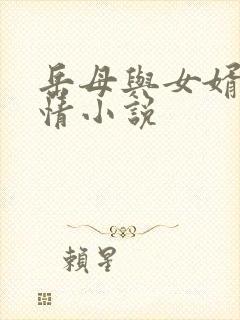 岳母與女婿
情小說
賴星